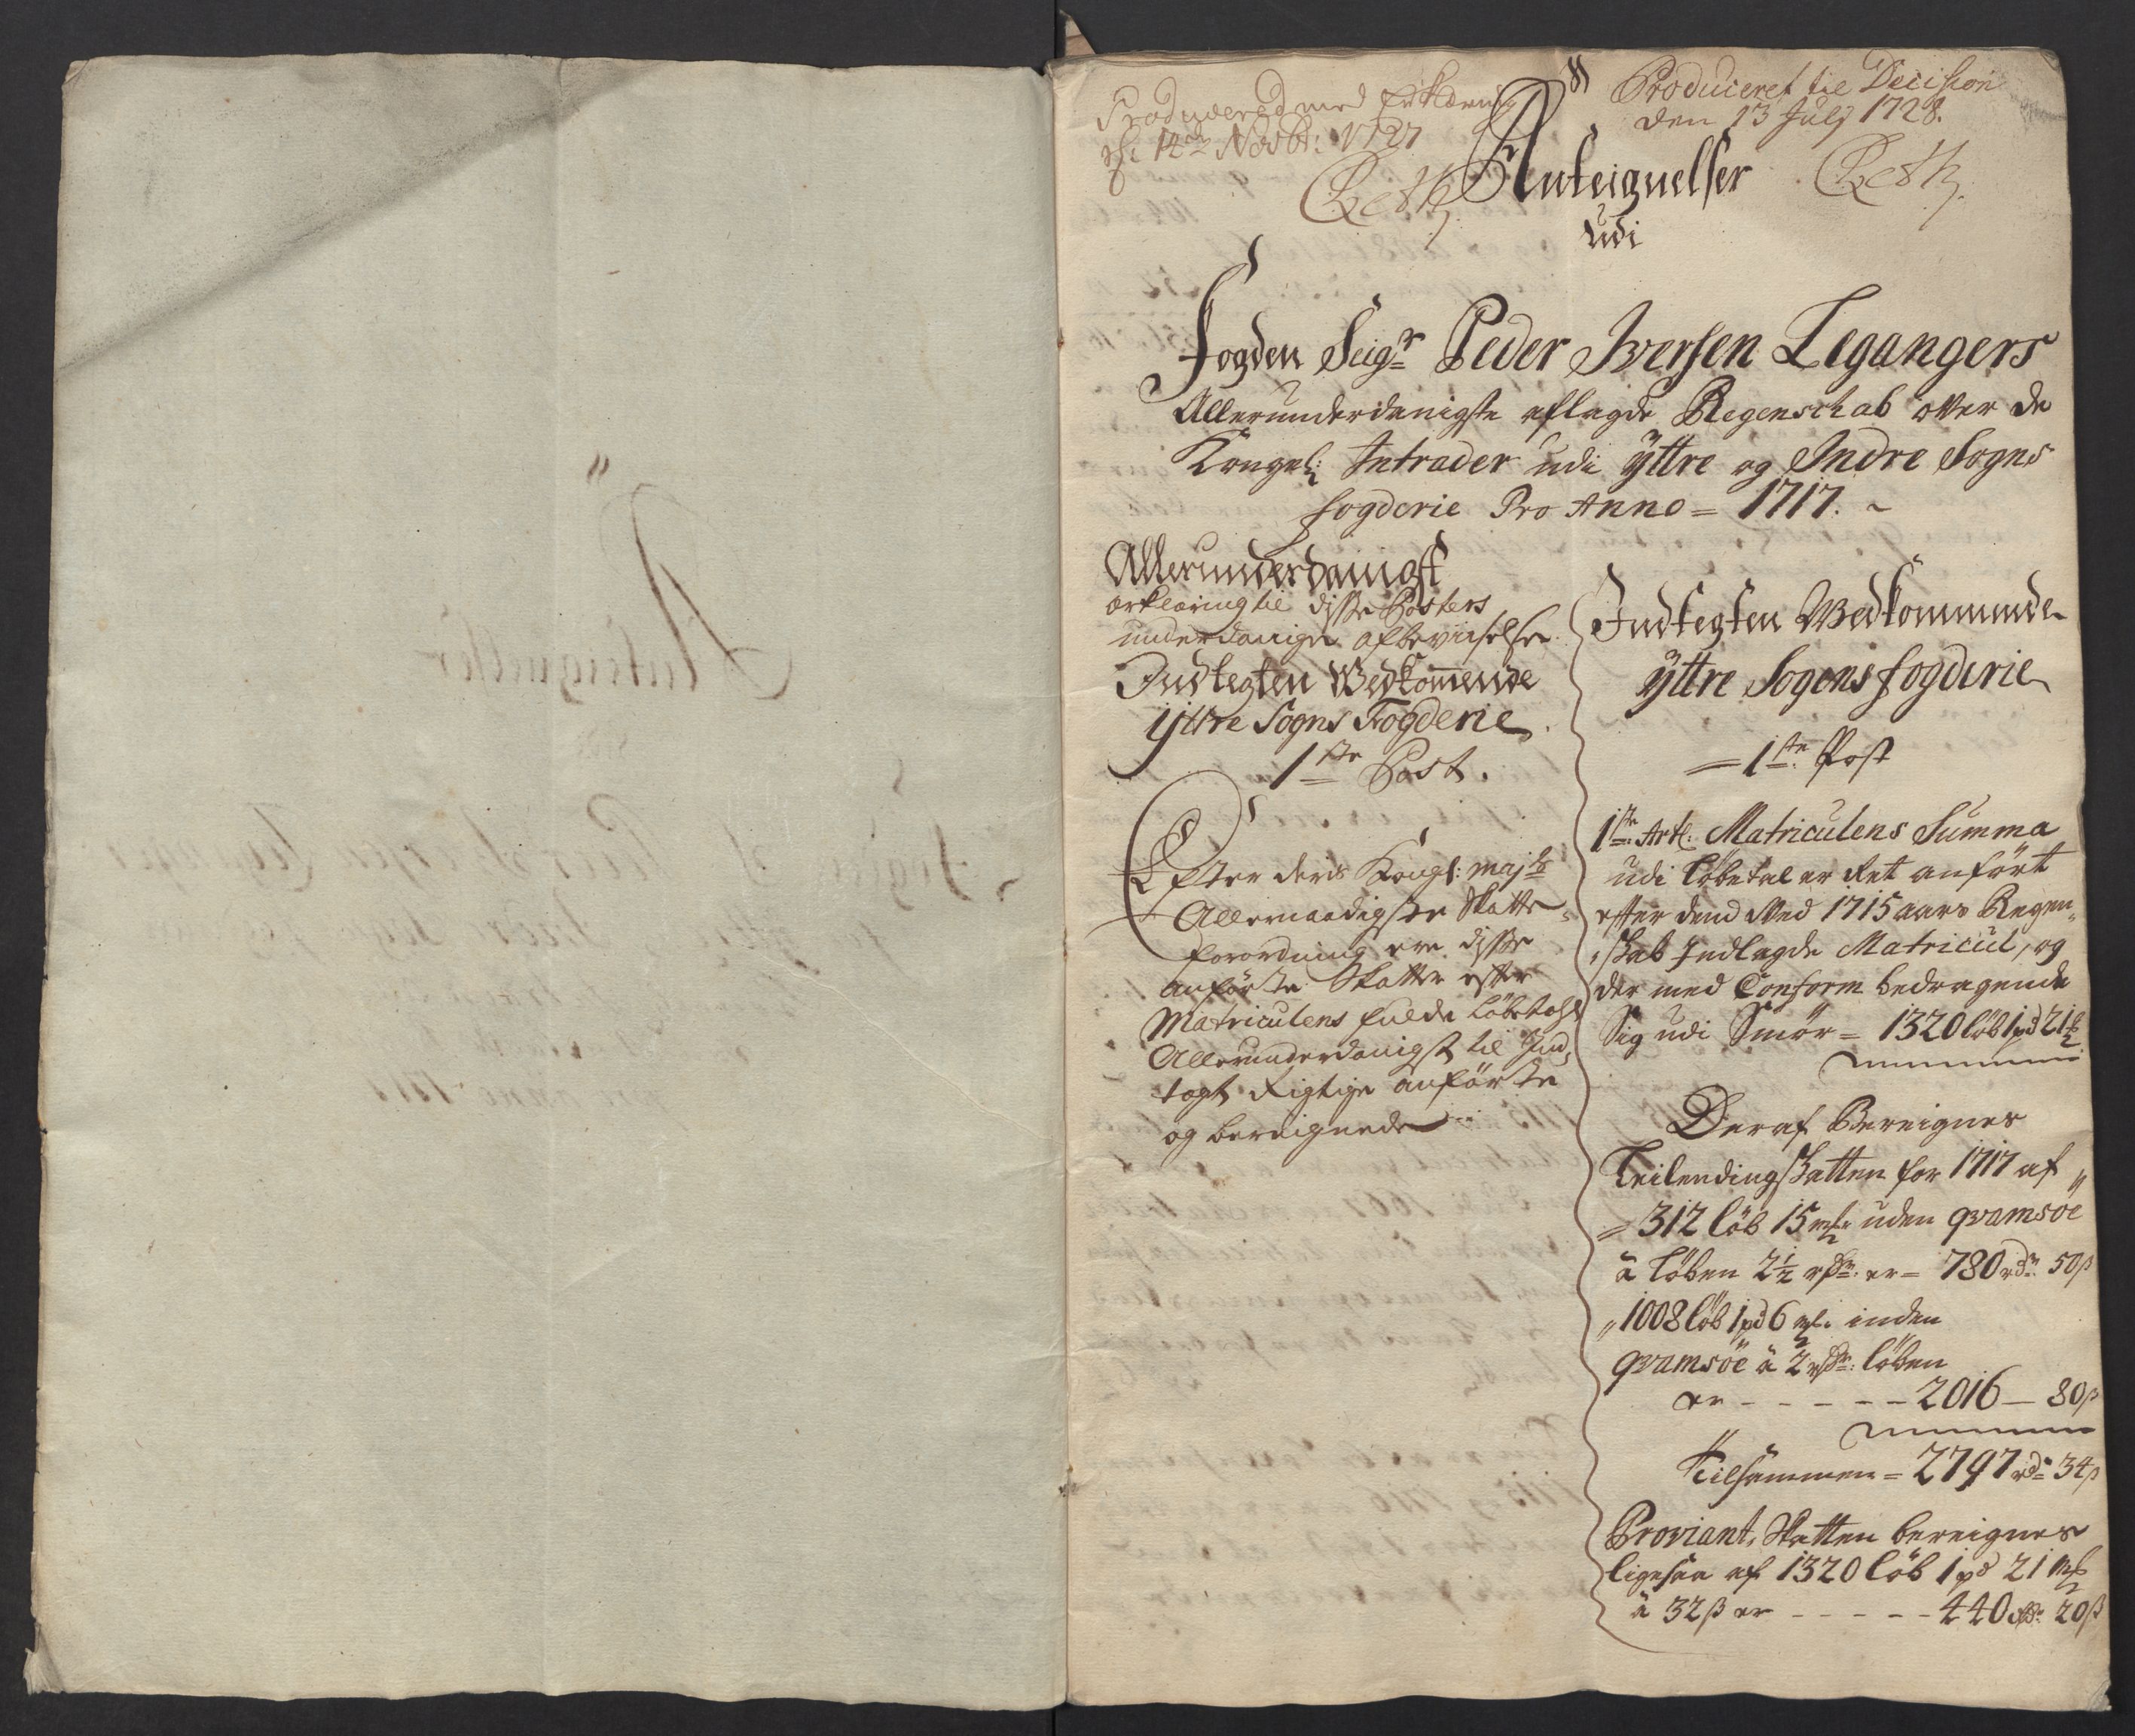 Produceret med Erklering
d: 12te Novbr: 1727
Reth
Produceret til Decision
den 13 July 1728.
Reth
Anteignelser
udi
Fogden Seigr Peder Iversen Legangers
Allerunderdanigste aflagde Regenschab over de
Kongel: Intrader udi Yttre og Indre Sogns
fogderie Pro Anno = 1717.
Allerunderdanigst
erklæring til disse Posters
underdanige afbeviiselse
Indtegten Vedkommende
Yttre Sogns Fogderie
1ste Post.
Efter deris Kongl: mayts
Allernaadigste Skatte
forordning ere disse
anförte Skatter efter
Matriculens fulde Löbetahl
Allerunderdanigst til Ind
tegt Rigtige anförte
og bereignede
Indtegten Vedkommende
Yttre Sogens fogderie
1ste Post
1ste Artl. Matriculens Summa
udi Löbetal er Ret anfört
efter dend Ved 1715 aars Regen
skab Indlagde Matricul, og
der med Conform bedragende
Sig udi Smör = 1320 löb 1 pd 21 mk
Deraf Bereignes
Leilendingskatten for 1717 af
312 Löb 15 mk uden qvamsöe
à Löben 2½ rdr er = 780 rdr 50 ß
1008 Löb 1 pd 6 mk inden
qvamsöe à 2 rdr: löben
er - - - - - 2016 - 80 ß
Tilsammen = 2797 rdr 34 ß
Proviant Skatten bereignes
ligesaa af 1320 Löb 1 pd 21 mk
à 32 ß er - - - - - 440 rdr 20 ß